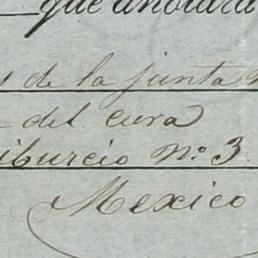 que anotara
s de la junta
del cura
iburcio no. 3
Mexico